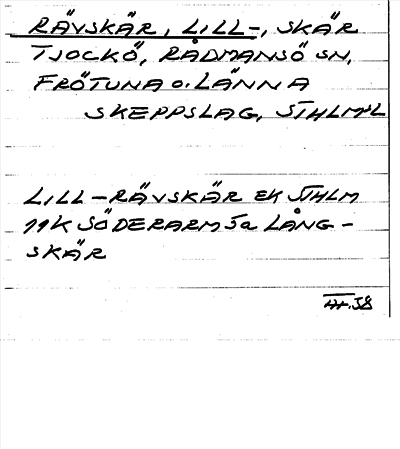 RÄVSKÄR, LILL-, SKÄR
TJOCKÖ, RÅDMANSÖ SN,
FRÖTUNA O. LÄNNA
SKEPPSLAG, STHLM:L
LILL-RÄVSKÄR EK STHLM
11K SÖDERARM 5a LÅNG-
SKÄR
58